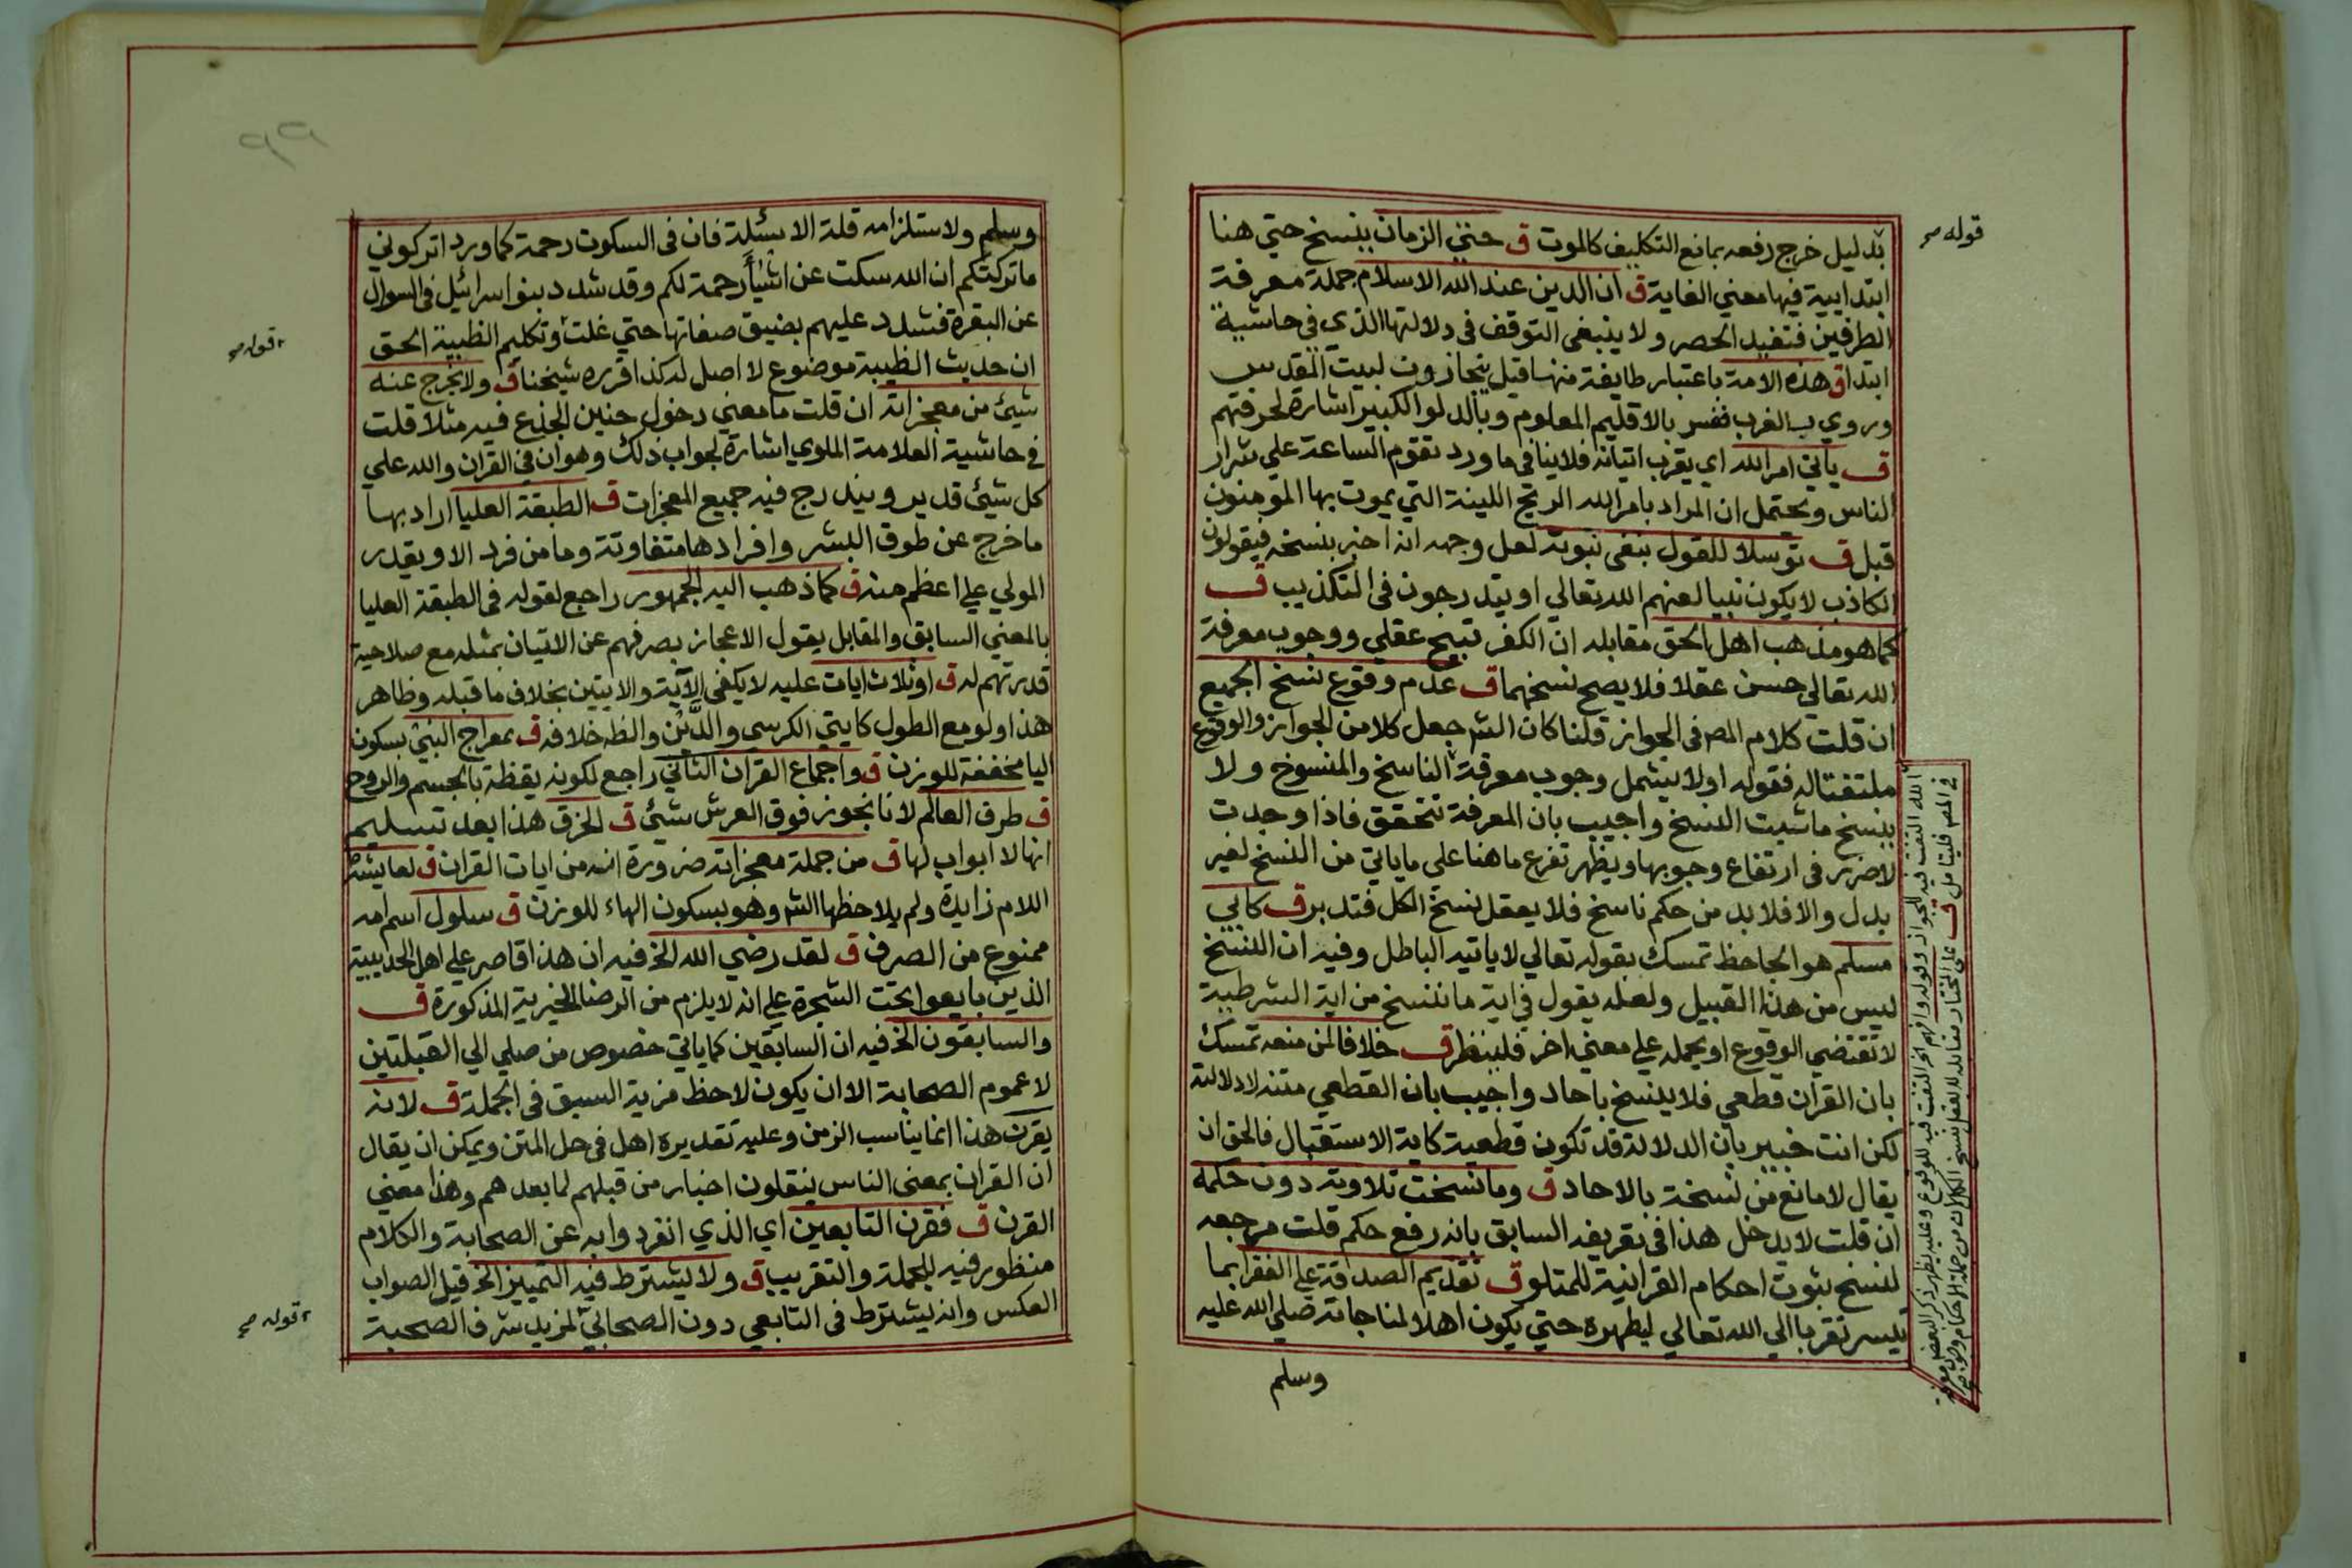 بدليل خرج رفعه بمانع التكليف كالموت ق حتي الزمان ينسخ حتي هنا
ابتدايية فيها معني الغاية ق ان الدين عند الله الاسلام جملة معرفة
الطرفين فتفيد الحصر ولا ينبغي التوقف في دلالتها الذي في حاشية
ابتداق هذه الامة باعتبار طايفة منها قبل يتجازون لبيت المقدس
وروي بالغرب ففسر بالاقليم المعلوم وبالدلو الكبير اشارة لحرفتهم
ق ياتي امر الله اي يقرب اتيانه فلا ينافي ما ورد تقوم الساعة علي شرار
الناس ويحتمل ان المراد بامر الله الريح اللينة التي يموت بها المؤمنون
قبل ق توسلا للقول بنفي نبوته لعل وجهه انه اخبر بنسخه فيقولون
الكاذب لا يكون نبيا لعنهم الله تعالي او يتدرجون في التكذيب ق
كما هو مذهب اهل الحق مقابله ان الكفر قبيح عقلي ووجوب معرفة
الله تعالي حسن عقلا فلا يصح نسخهما ق عدم وقوع نسخ الجميع
ان قلت كلام المص في الجواز قلنا كان الش جعل كلا من الجواز والوقوع
ملتفتا له فقوله اولا يشمل وجوب معرفة الناسخ والمنسوخ ولا
ينسخ ما شيت النسخ واجيب بان المعرفة تتحقق فاذا وجدت
لا ضرر في ارتفاع وجوبها ويظهر تفرع ما هنا علي ما ياتي من النسخ لغير
بدل والا فلا بد من حكم ناسخ فلا يعقل نسخ الكل فتدبر ق كابي
مسلم هو الجاحظ تمسك بقوله تعالي لا ياتيه الباطل وفيه ان النسخ
ليس من هذا القبيل ولعله يقول في اية ما ننسخ من اية الشرطية
لا تقتضي الوقوع او يحمله علي معني اخر فلينظر ق خلافا لمن منعه تمسك
بان القران قطعي فلا ينسخ باحاد واجيب بان القطعي متنه لا دلالته
لكن انت خبير بان الدلالة قد تكون قطعية كاية الاستقبال فالحق ان
يقال لا مانع من نسخه بالاحاد ق وما نسخت تلاوته دون حكمه
ان قلت لا يدخل هذا في تعريفه السابق بانه رفع حكم قلت مرجعه
لنسخ ثبوت احكام القرانية للمتلو ق تقديم الصداقة علي الفقرا بما
تيسر تقربا الي الله تعالي ليطهره حتي يكون اهلا لمناجاته صلي الله عليه
وسلم
قوله صح
وسلم ولاستلزامه قلة الاسئلة فان في السكوت رحمة كما ورد اتركوني
ما تركتكم ان الله سكت عن اشيأ رحمة لكم وقد شدد بنوا اسرائيل في السوال
عن البقرة فشدد عليهم بضيق صفاتها حتي غلت وتكليم الظبية الحق
ان حديث الظبية موضوع لا اصل له كذا قرره شيخنا ق ولا يخرج عنه
شيئ من معجزاته ان قلت ما معني دخول حنين الجذع فيه مثلا قلت
في حاشية العلامة الملوي اشارة لجواب ذلك وهو ان في القران والله علي
كل شيئ قدير ويندرج فيه جميع المعجزات ق الطبقة العليا اراد بها
ما خرج عن طوق البشر وافرادها متفاوتة وما من فرد الا ويقدر
المولي علي اعظم منه ق كما ذهب اليه الجمهور راجع لقوله في الطبقة العليا
بالمعني السابق والمقابل يقول الاعجاز بصرفهم عن الاتيان بمثله مع صلاحية
قدرتهم له ق او ثلاث ايات عليه لا يكفي الآية والايتين بخلاف ما قبله وظاهر
هذا ولو مع الطول كايتي الكرسي والدَّين والظ خلافه ق بمعراج النبي بسكون
اليا مخففة للوزن ق واجماع القران الثاني راجع لكونه يقظة بالجسم والروح
ق طرف العالم لانا نجوز فوق العرش شئ ق الخرق هذا بعد تسليم
انها لا ابواب لها ق من جملة معجزاته ضرورة انه من ايات القران ق لعايشة
اللام زايدة ولم يلاحظها الش وهو بسكون الهاء للوزن ق سلول اسم امه
ممنوع من الصرف ق لقد رضي الله الخ فيه ان هذا قاصر علي اهل الحديبية
الذين بايعوا تحت الشجرة علي انه لا يلزم من الرضا الخيرية المذكورة ق
والسابقون الخ فيه ان السابقين كما ياتي خصوص من صلي الي القبلتين
لا عموم الصحابة الا ان يكون لاحظ مزية السبق في الجملة ق لانه
يقرن هذا انما يناسب الزمن وعليه تقديره اهل في حل المتن ويمكن ان يقال
ان القران بمعني الناس ينقلون اخبار من قبلهم لما بعدهم وهذا معني
القرن ق فقرن التابعين اي الذي انفردوا به عن الصحابة والكلام
منظور فيه للجملة والتقريب ق ولا يشترط فيه التمييز الخ قيل الصواب
العكس وانه يشترط في التابعي دون الصحابي لمزيد شرف الصحبة
قوله صح
قوله صح